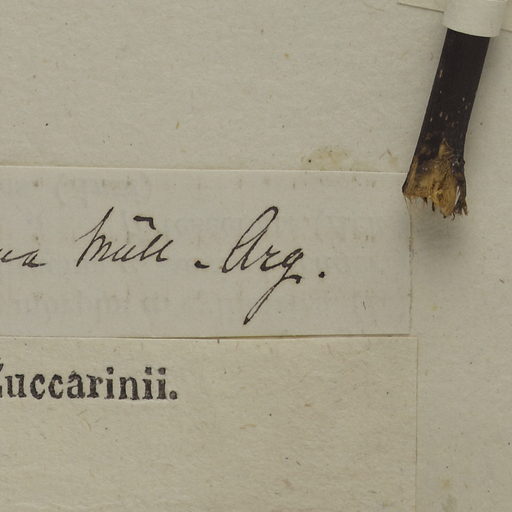 Müll-Arg.
Zuccarinii.